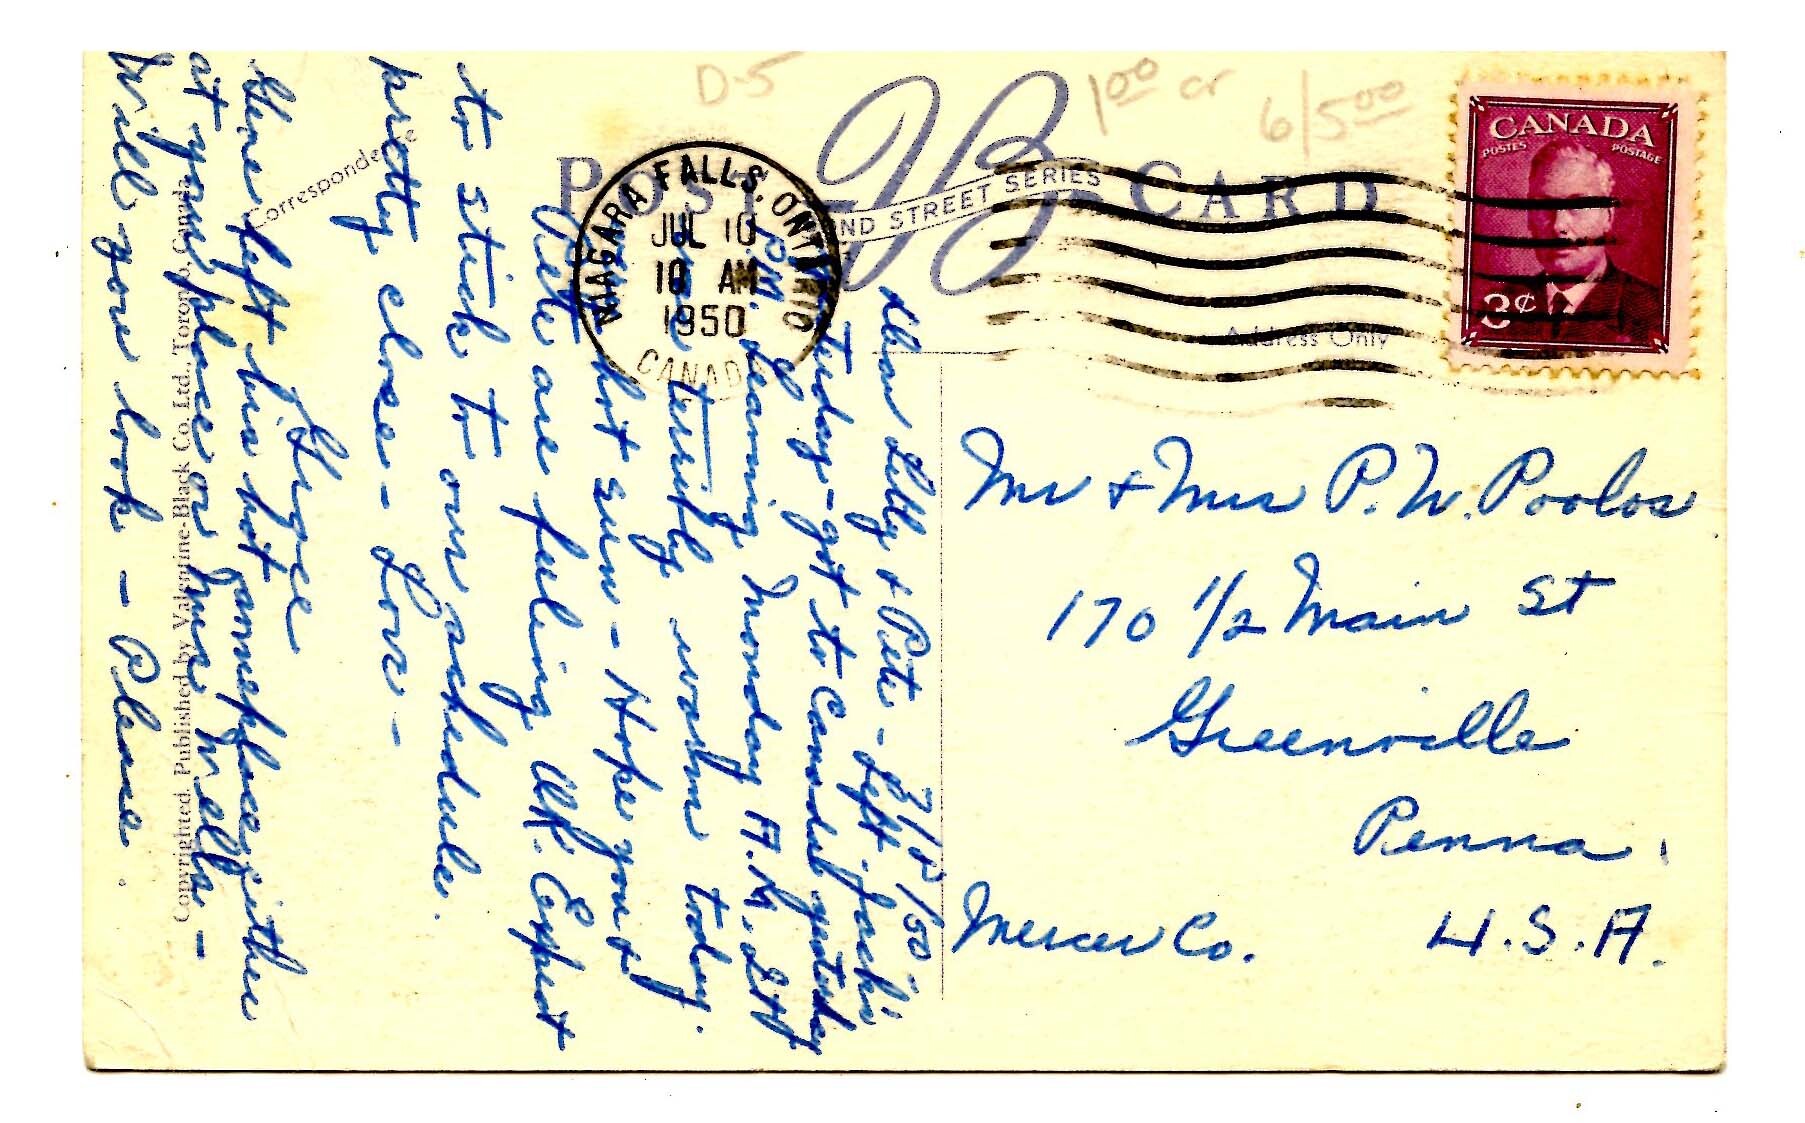 D-5
1.00 or
6/5.00
POST CARD
VB
ND STREET SERIES
CANADA
POSTES POSTAGE
3¢
NIAGARA FALLS, ONTARIO
JUL 10
10 AM
1950
CANADA
Correspondence
Address Only
Copyrighted. Published by Valentine-Black Co. Ltd., Toronto, Canada
7/9/50.
Dear Lilly & Pete - Left Jack's
- got to Canada yesterday
P.M. Leaving Monday A.M.
terribly warm today.
hot sun - Hope you &
Pete are feeling OK. Expect
to stick to our schedule.
pretty close - Love -
Grace
Gene left his hat someplace, either
at your place or Mrs Wells -
Will you look - Please.
Mr & Mrs P. W. Poolos
170 1/2 Main St
Greenville
Penna.
Mercer Co. U.S.A.